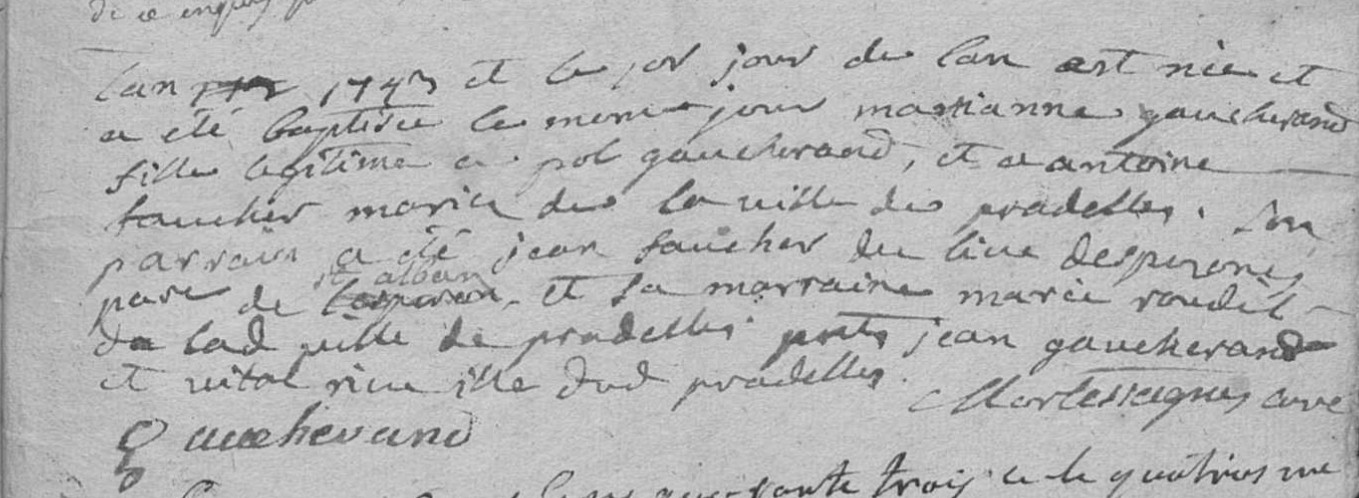 de ce enquis
lan 1743 et le jor jour de lan est nie et
a été baptisee le meme jour marianne gaucherand
fille legitime a pol gaucherand, et a antoine
faucher mariee de la ville de pradelles. Son
parrain a été jean faucher du lieu desperons
parr de st alban et sa marraine marie roudil
de lad ville de pradelles pnts jean gaucherand
et vital rieu ille dud pradelles. Martessagnes curé
Gaucherand
trois e le quatries me